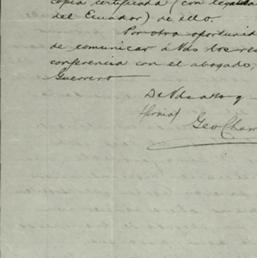 copia certificada (con legaliza
del Ecuador) de ello.
Por otra oportunid
de comunicar á Vds los res
conferencia con el abogado,
Guerrero
De Vds atto y
Geo Cham